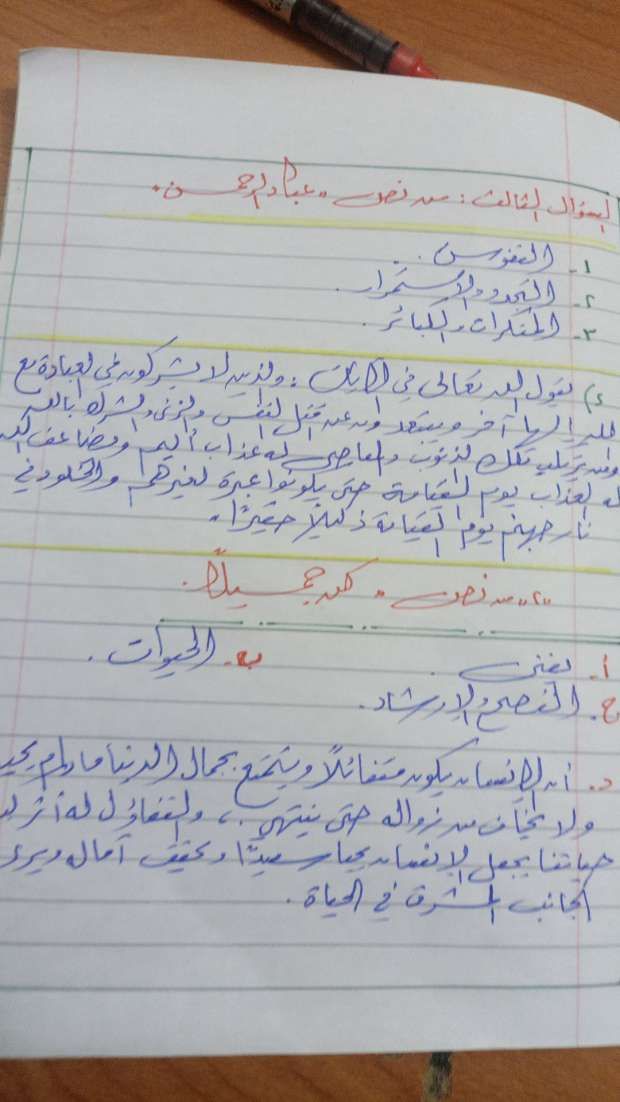 السؤال الثالث: من نص "عباد الرحمن"
١- النفوس.
٢- التجدد والاستمرار.
٣- المنكرات والكبائر.
٤) يقول الله تعالى في الآيات: والذين لا يشركون في العبادة مع
الله إلهاً آخر ويبتعدون عن قتل النفس والزنى والشرك بالله
ومن يرتكب تلك الذنوب والمعاصي له عذاب أليم ويضاعف الله
له العذاب يوم القيامة حتى يكونوا عبرة لغيرهم والخلود في
نار جهنم يوم القيامة ذليلاً حقيراً.
"٢" من نص "كن جميلاً"
أ- يفنى. ب- الحيوات.
ج. النصح والإرشاد.
د. أن الإنسان يكون متفائلاً ويتمتع بجمال الدنيا مادام يحيا
ولا يخاف من زواله حتى ينتهي، والتفاؤل له أثر
حياتنا يجعل الإنسان يحيا سعيداً ويحقق آماله ويرى
الجانب المشرق في الحياة.